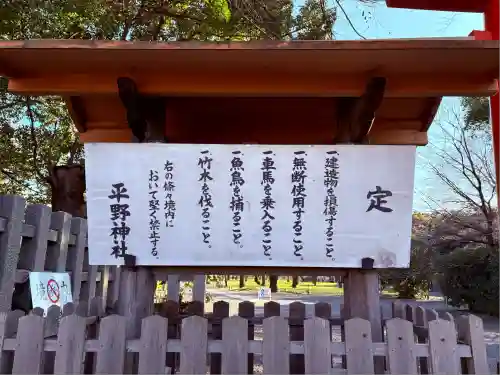 定
一建造物を損傷すること。
一無断使用すること。
一車馬を乗入ること。
一魚鳥を捕ること。
一竹木を伐ること。
右の條々境内に
おいて堅く禁ずる。
平野神社